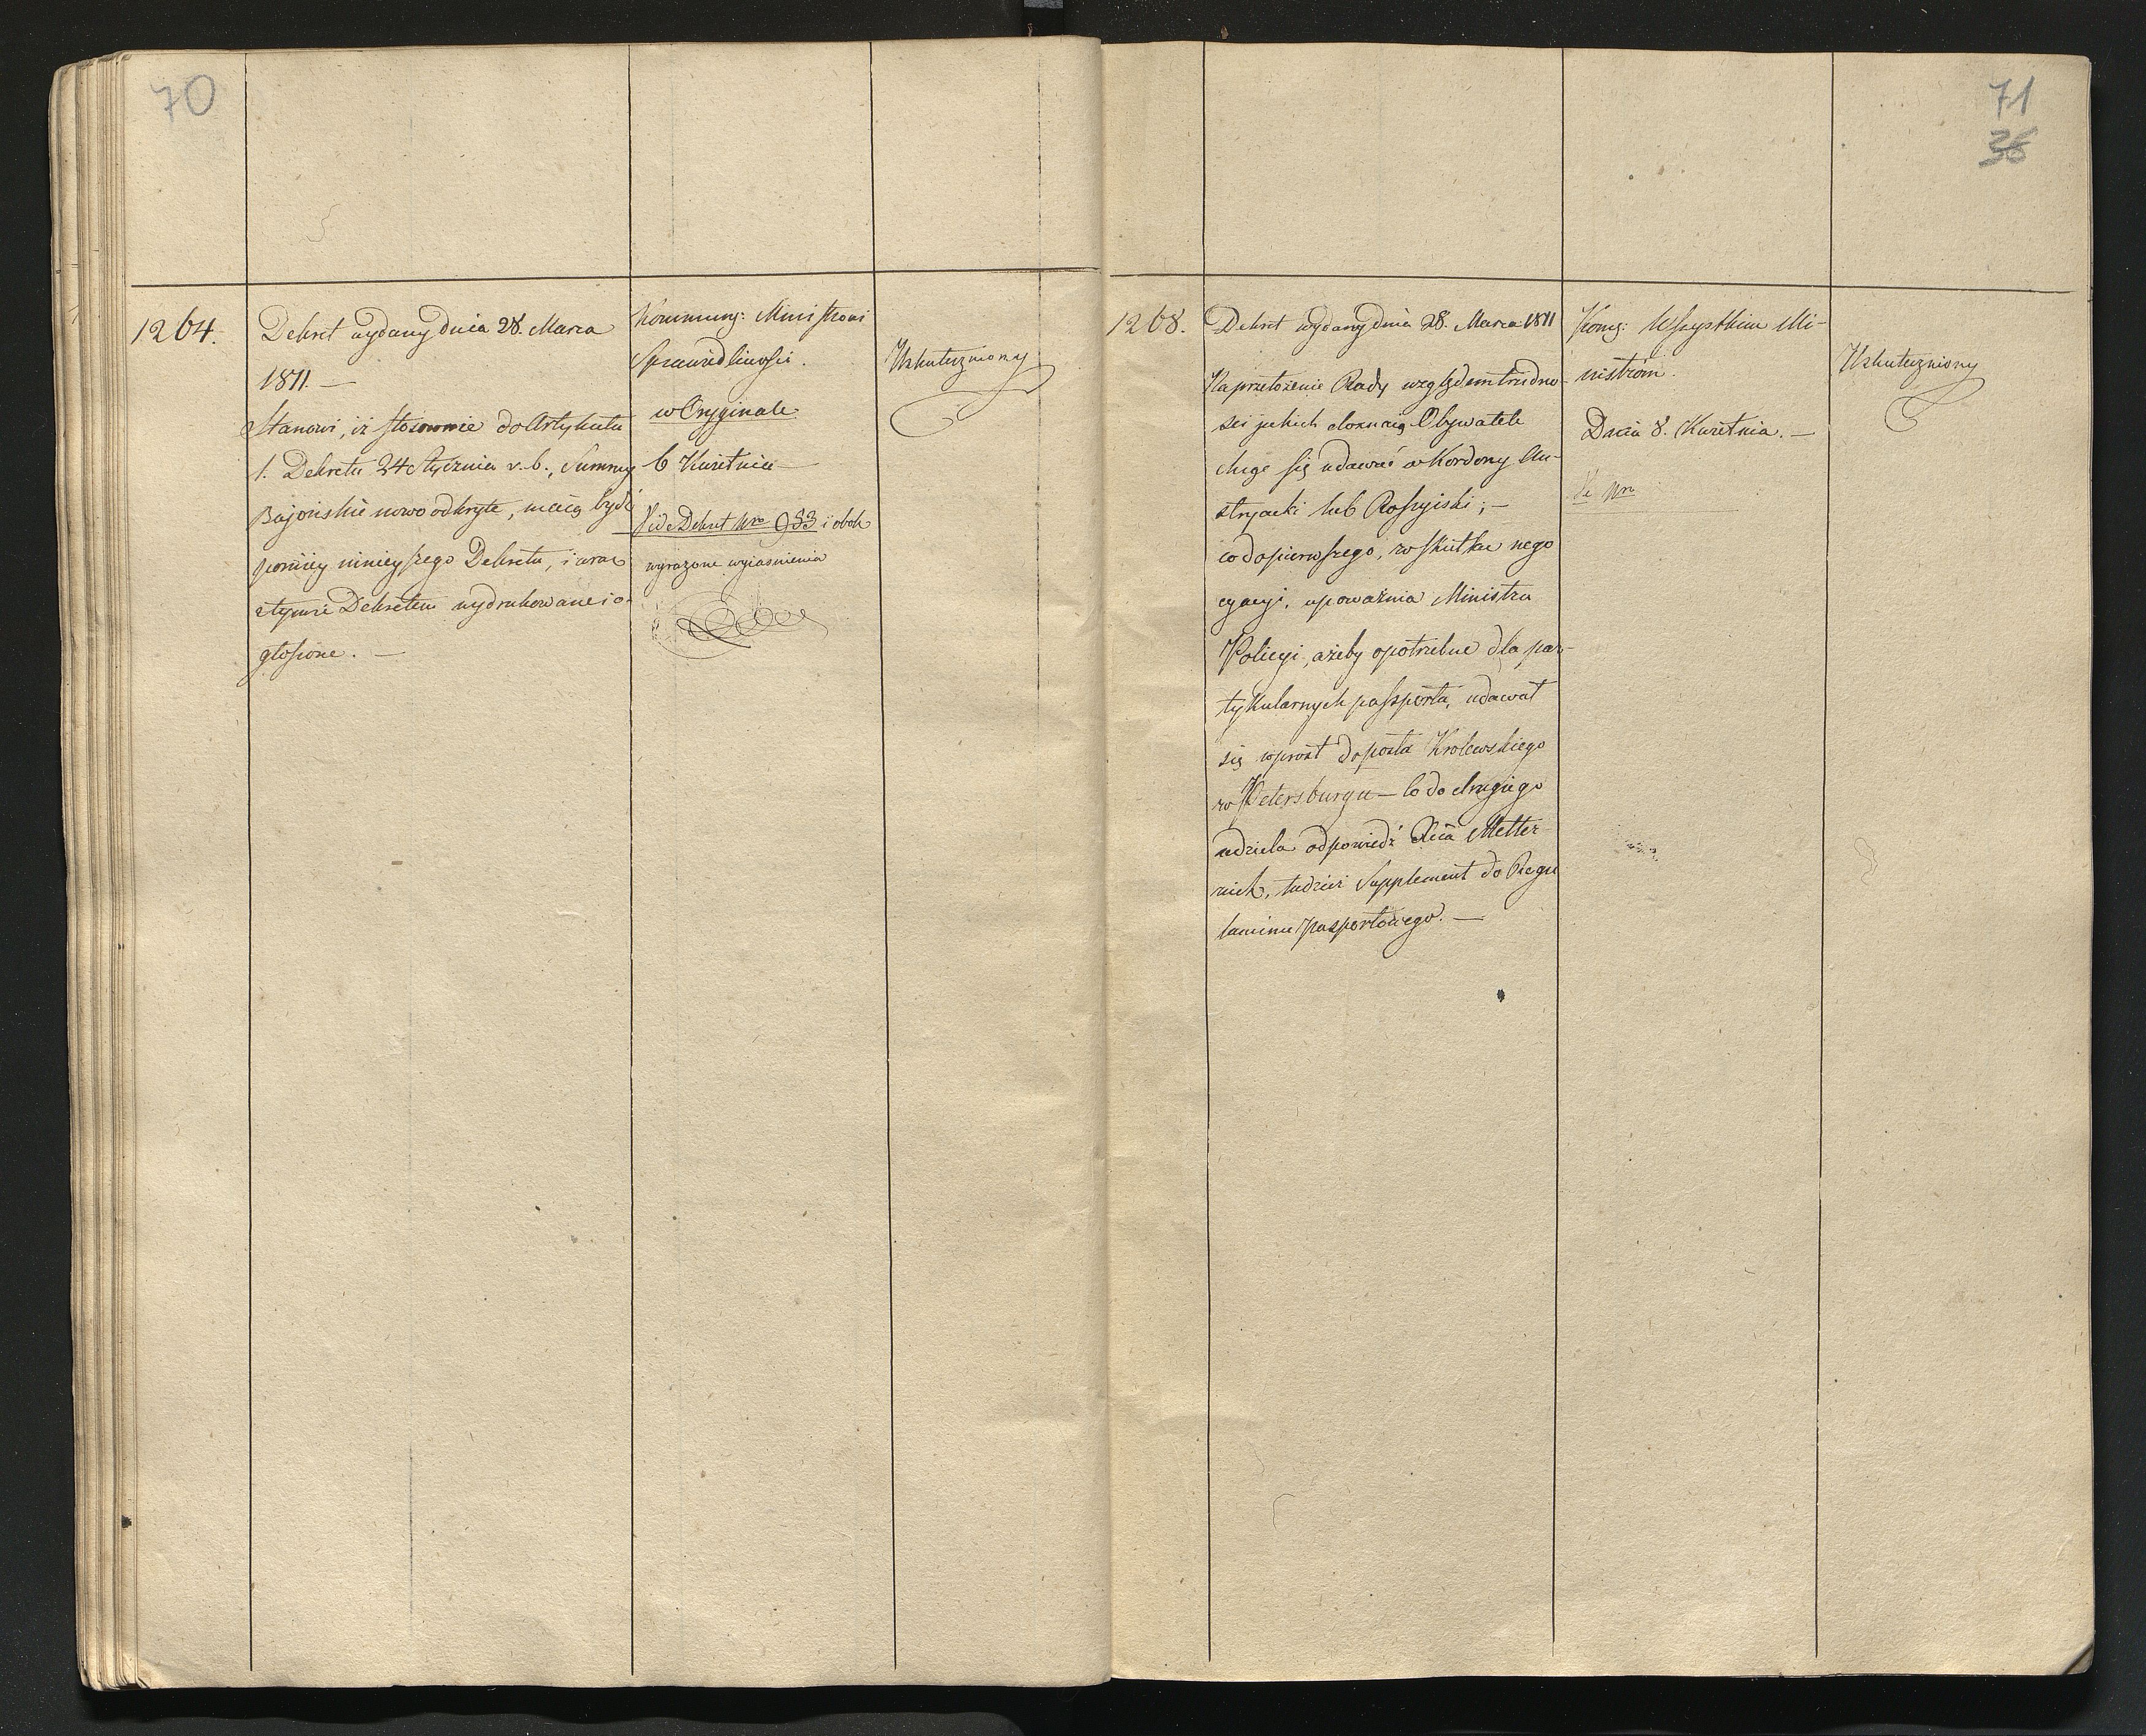 70
1264.
Dekret wydany dnia 28. Marca
1811. —
Stanowi, iż stosownie do Artykułu
1. Dekretu 24 Stycznia r. b., Summy
Bajońskie nowo odkryte, maią bydź
poniżey ninieyszego Dekretu, i wraz
z tymże Dekretem wydrukowane i o-
głoszone. —
Kommung: Ministrowi
Sprawiedliwości.
w Oryginale
6 Kwietnia —
Vide Dekret Nro 953 i obok
wyrażone wyiaśnienia
Uskuteczniony
71
36
1268.
Dekret wydany dnia 28. Marca 1811
Na przełożenie Rady względem trudno-
ści jakich doznaią Obywatele
chcąc się udawać w Kordony Au-
stryacki lub Rossyiski; —
co do pierwszego, w skutku nego
cyacyi, upoważnia Ministra
Policyi, ażeby o potrzebne dla par-
tykularnych passporta, udawał
się wprost do posła Krolewskiego
w Petersburgu — Co do drugiego
udziela odpowiedź Xcia Metter-
nich, tudzież Supplement do Regu
laminu paszportowego. —
Komg: Wszystkim Mi-
nistróm.
Dnia 8. Kwietnia. —
Nro
Uskuteczniony